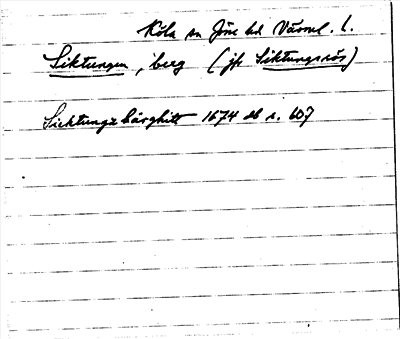 Köla sn Jösse hd Värml. l.
Siktungen, berg (jfr Siktungsrös)
Sicktungz bärghitt 1674 db s. 607